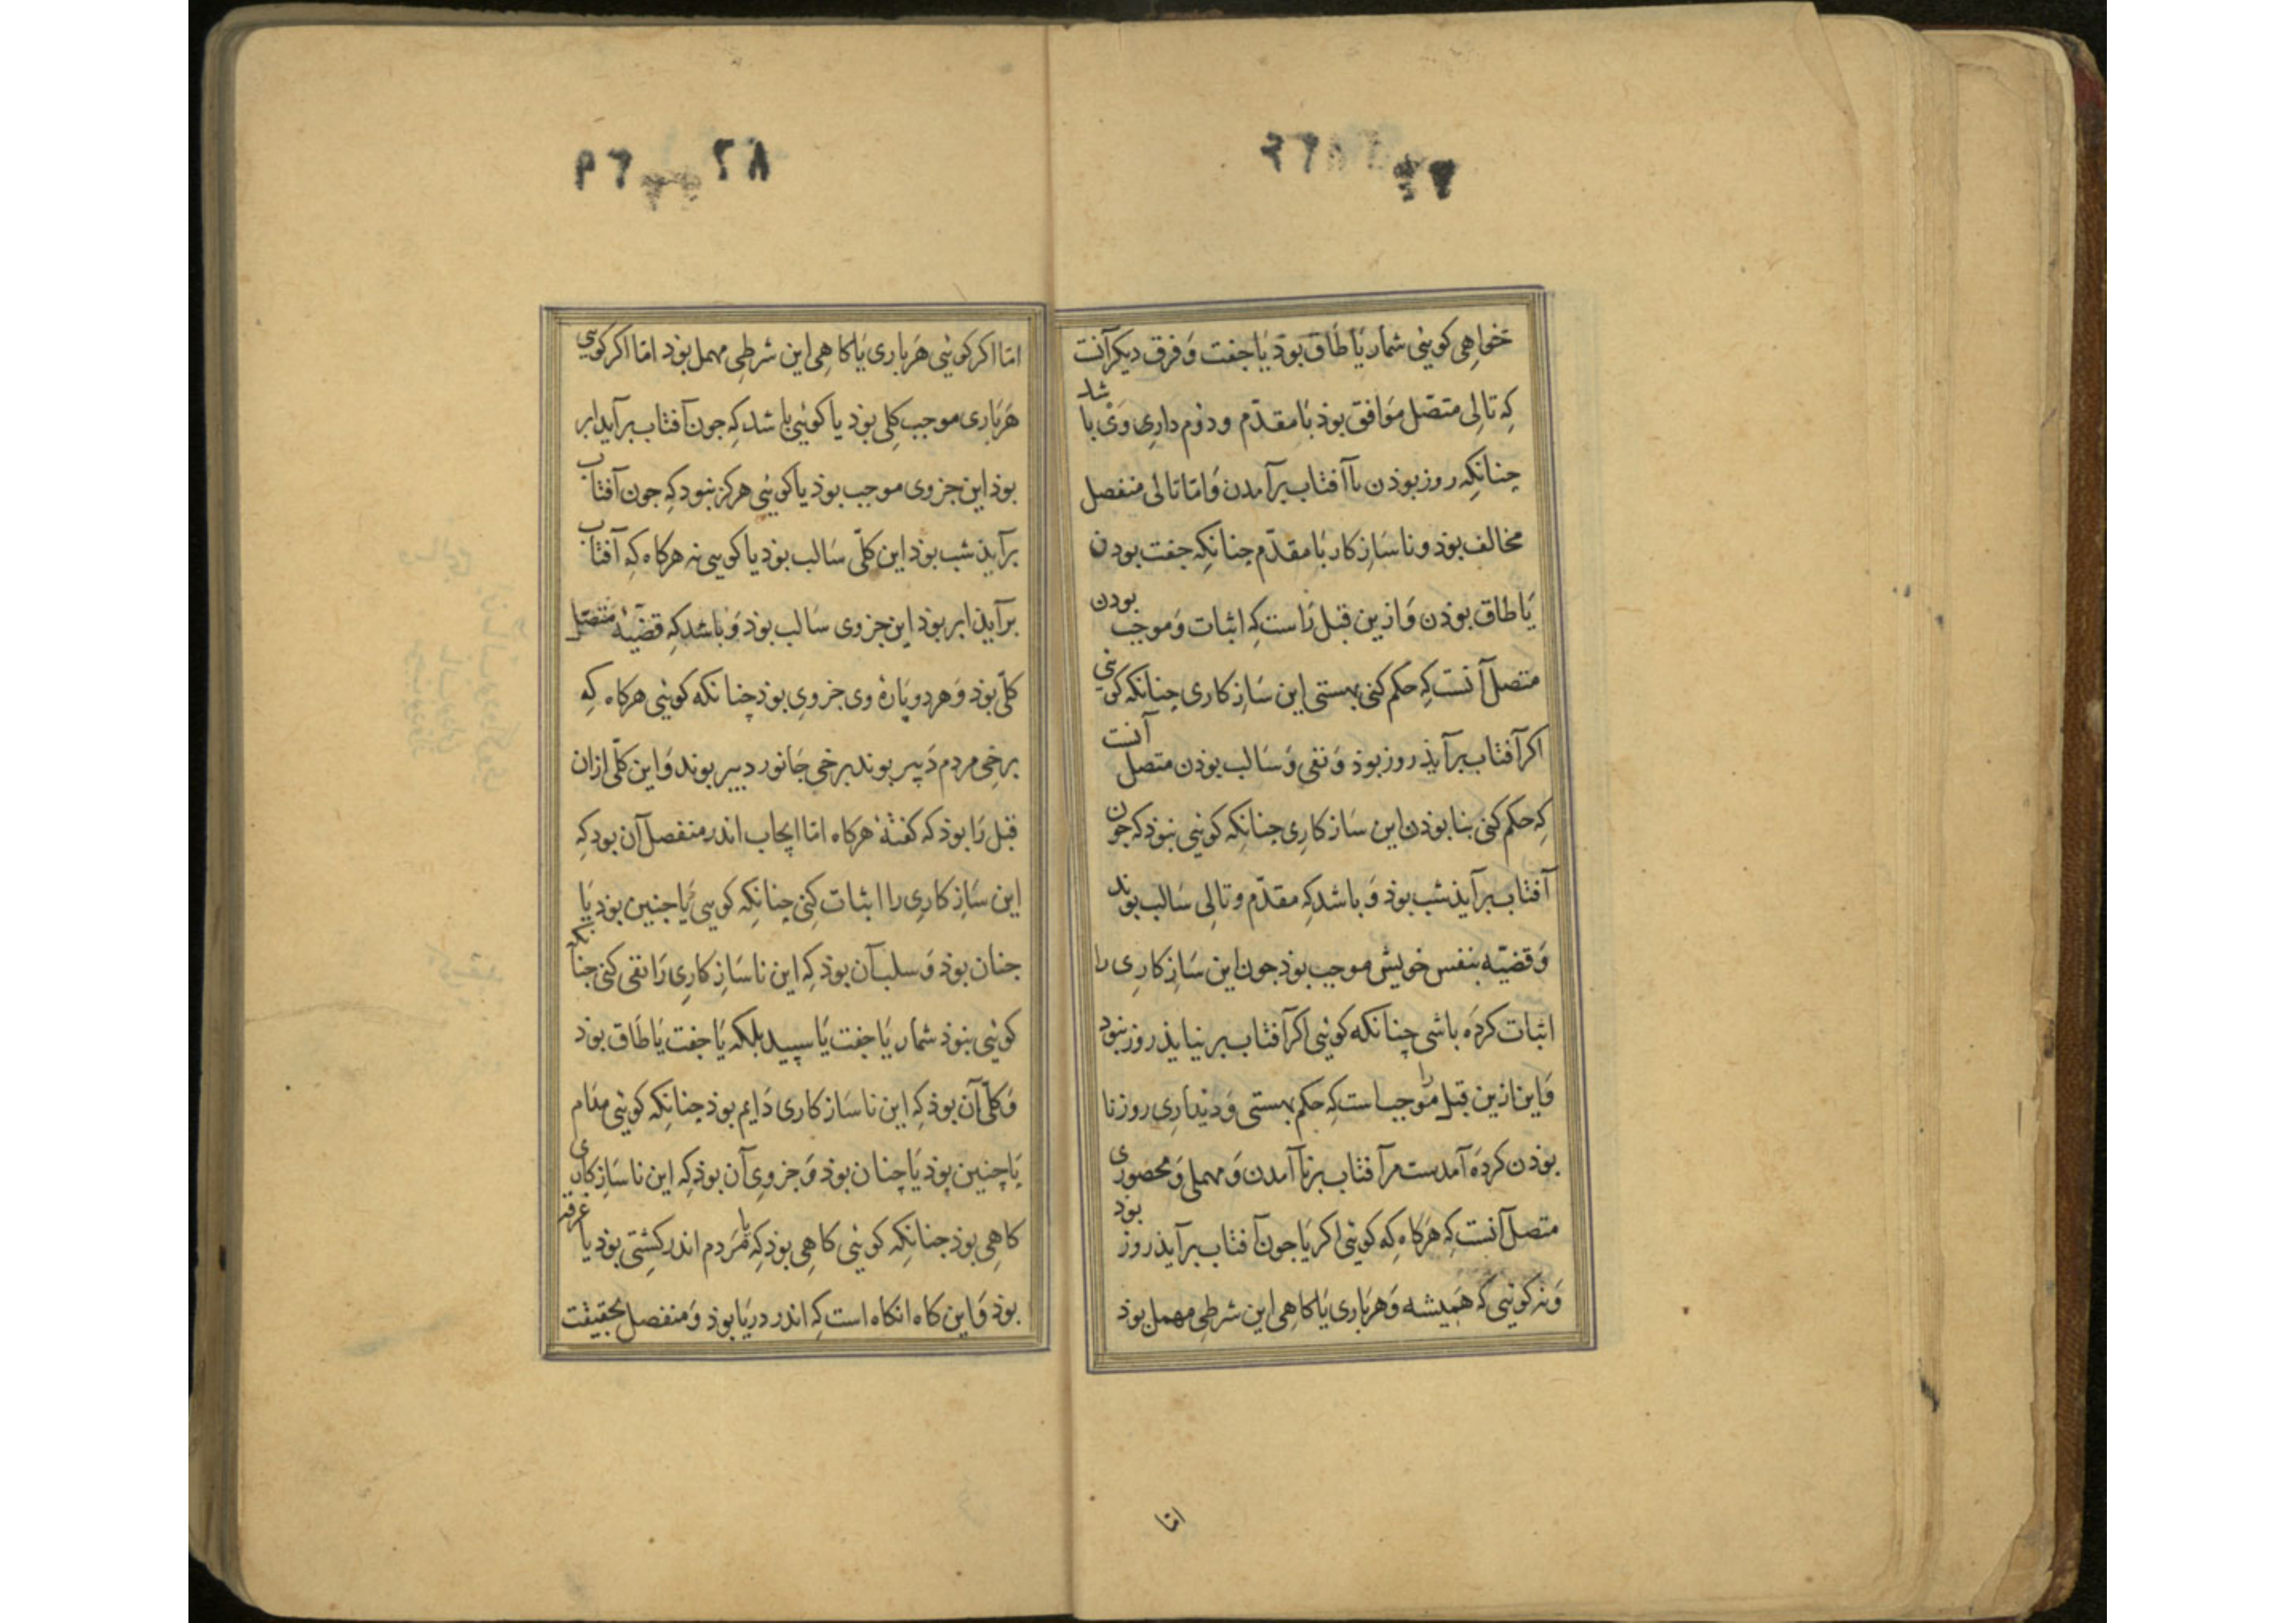 خواهی کوئیی شمار یا طاق بوذ یا جفت وفرق دیکر آنست
که تالی متصل موافق بوذ با مقدّم و دوم داری وی باشد
جنانکه روز بوذن با آفتاب برآمدن واما تالی منفصل
مخالف بوذ و ناسازکار با مقدّم جنانکه جفت بودن
یا طاق بوذن وازین قبل راست که اثبات وموجب بودن
متصل آنست که حکم کنی بهستی این سازکاری جنانکه کوئیی
اکر آفتاب برآیذ روز بوذ ونفی وسالب بوذن متصل آنست
که حکم کنی بنابوذن این سازکاری جنانکه کوئیی نبوذ که جون
آفتاب برآیذ شب بوذ وباشد که مقدّم وتالی سالب بوند
وقضیّه بنفس خویش موجب بوذ جون این سازکاری را
اثبات کرده باشی چنانکه کوئیی اکر آفتاب برنیایذ روز نبود
واین ازین قبل را موجب است که حکم بهستی ودینداری روز نا
بوذن کرده آمدست مر آفتاب برنآمدن ومهملی ومحصوری
متصل آنست که هرکاه که کوئیی اکر یا جون آفتاب برآیذ روز بود
ونه کوئیی که همیشه وهرباری یا کاهی این شرطی مهمل بوذ
اما
اما اکر کوئیی هرباری یا کاهی این شرطی مهمل بوذ اما اکر کویی
هرباری موجب کلی بوذ یا کوئیی باشد که جون آفتاب برآید ابر
بوذ این جزوی موجب بوذ یا کوئیی هرکز نبود که جون آفتاب
برآیذ شب بوذ این کلّی سالب بوذ یا کویی نه هرکاه که آفتاب
برآیذ ابر بوذ این جزوی سالب بوذ وباشد که قضیهٔ متصل
کلّی بوذ وهر دو پارهٔ وی جزوی بوذ چنانکه کوئیی هرکاه که
برخی مردم دبیر بوند برخی جانور دبیر بوند واین کلّی ازان
قبل را بوذ که کفتهٔ هرکاه اما ایجاب اندر منفصل آن بود که
این سازکاری را اثبات کنی چنانکه کویی یا جنین بوذ یا
جنان بوذ وسلب آن بوذ که این ناسازکاری را نفی کنی جنانکه
کوئیی نبوذ شمار یا جفت یا سپید بلکه یا جفت یا طاق بوذ
وکلّی آن بوذ که این ناسازکاری دایم بوذ جنانکه کوئیی مدام
یا چنین بوذ یا چنان بوذ وجزوی آن بوذ که این ناسازکاری
کاهی بوذ جنانکه کوئیی کاهی بوذ که یا مردم اندر کشتی بوذ یا غرقه
بوذ واین کاه انکاه است که اندر دریا بوذ ومنفصل بحقیقت